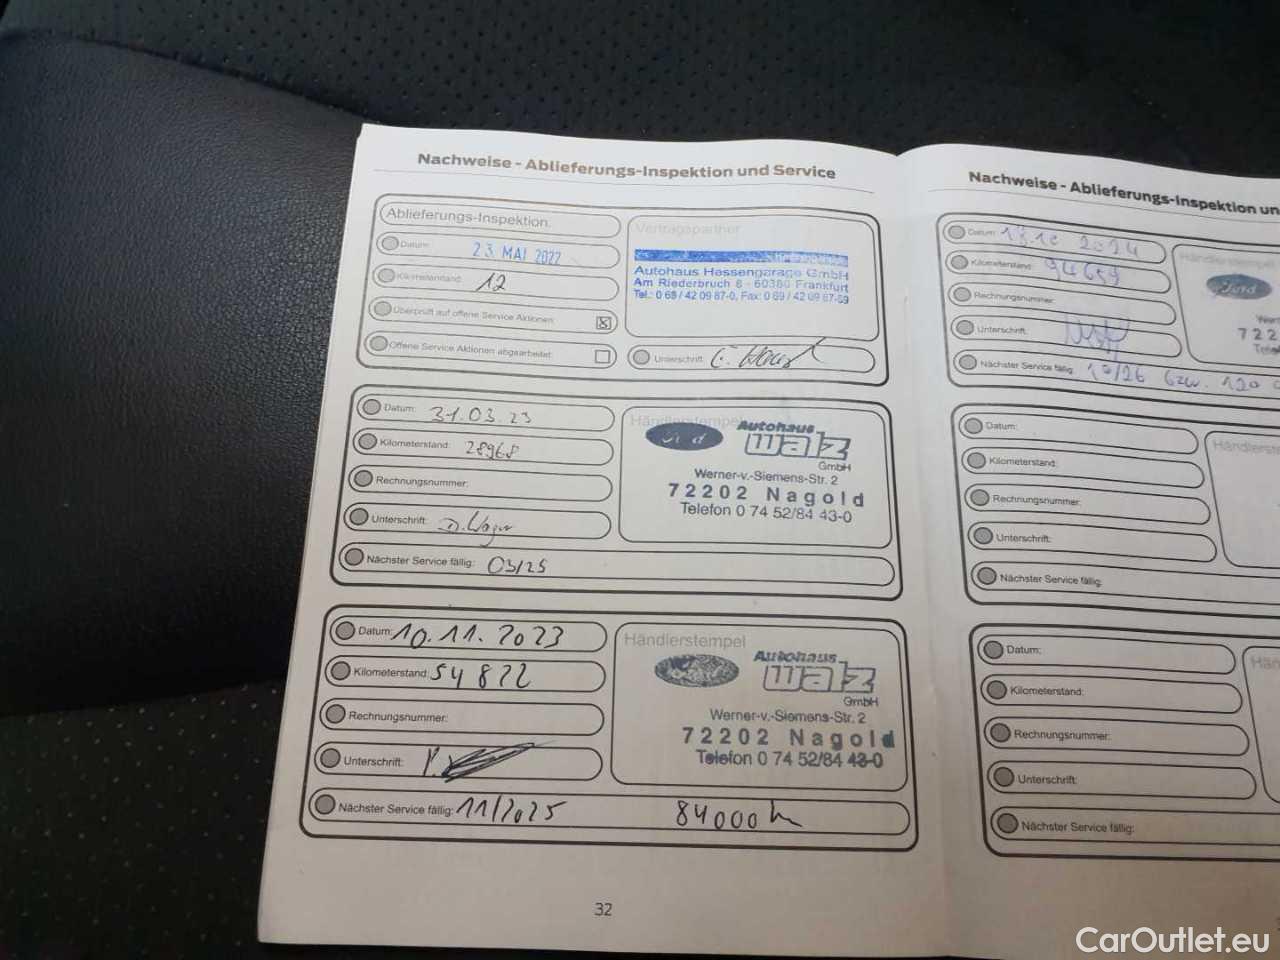 Nachweise - Ablieferungs-Inspektion und Service
Ablieferungs-Inspektion.
Datum: 23. MAI 2022
Kilometerstand: 12
Überprüft auf offene Service Aktionen:
Offene Service Aktionen abgearbeitet:
Vertragspartner
Autohaus Hessengarage GmbH
Am Riederbruch 8 - 60386 Frankfurt
Tel.: 0 69 / 42 09 87-0, Fax: 0 69 / 42 09 87-59
Unterschrift:
Datum: 31.03.23
Kilometerstand: 28968
Rechnungsnummer:
Unterschrift:
Nächster Service fällig: 03/25
Händlerstempel
Ford
Autohaus
walz
GmbH
Werner-v.-Siemens-Str. 2
72202 Nagold
Telefon 0 74 52/84 43-0
Datum: 10.11.2023
Kilometerstand: 54822
Rechnungsnummer:
Unterschrift:
Nächster Service fällig: 11/2025 84000
Händlerstempel
Autohaus
walz
GmbH
Werner-v.-Siemens-Str. 2
72202 Nagold
Telefon 0 74 52/84 43-0
32
Nachweise - Ablieferungs-Inspektion un
Datum: 2024
Kilometerstand: 94659
Rechnungsnummer:
Unterschrift:
Nächster Service fällig: 10/26 bzw. 120
Händlerstempel
Ford
Wer
722
Tele
Datum:
Kilometerstand:
Rechnungsnummer:
Unterschrift:
Nächster Service fällig:
Händlerste
Datum:
Kilometerstand:
Rechnungsnummer:
Unterschrift:
Nächster Service fällig:
Hän
CarOutlet.eu